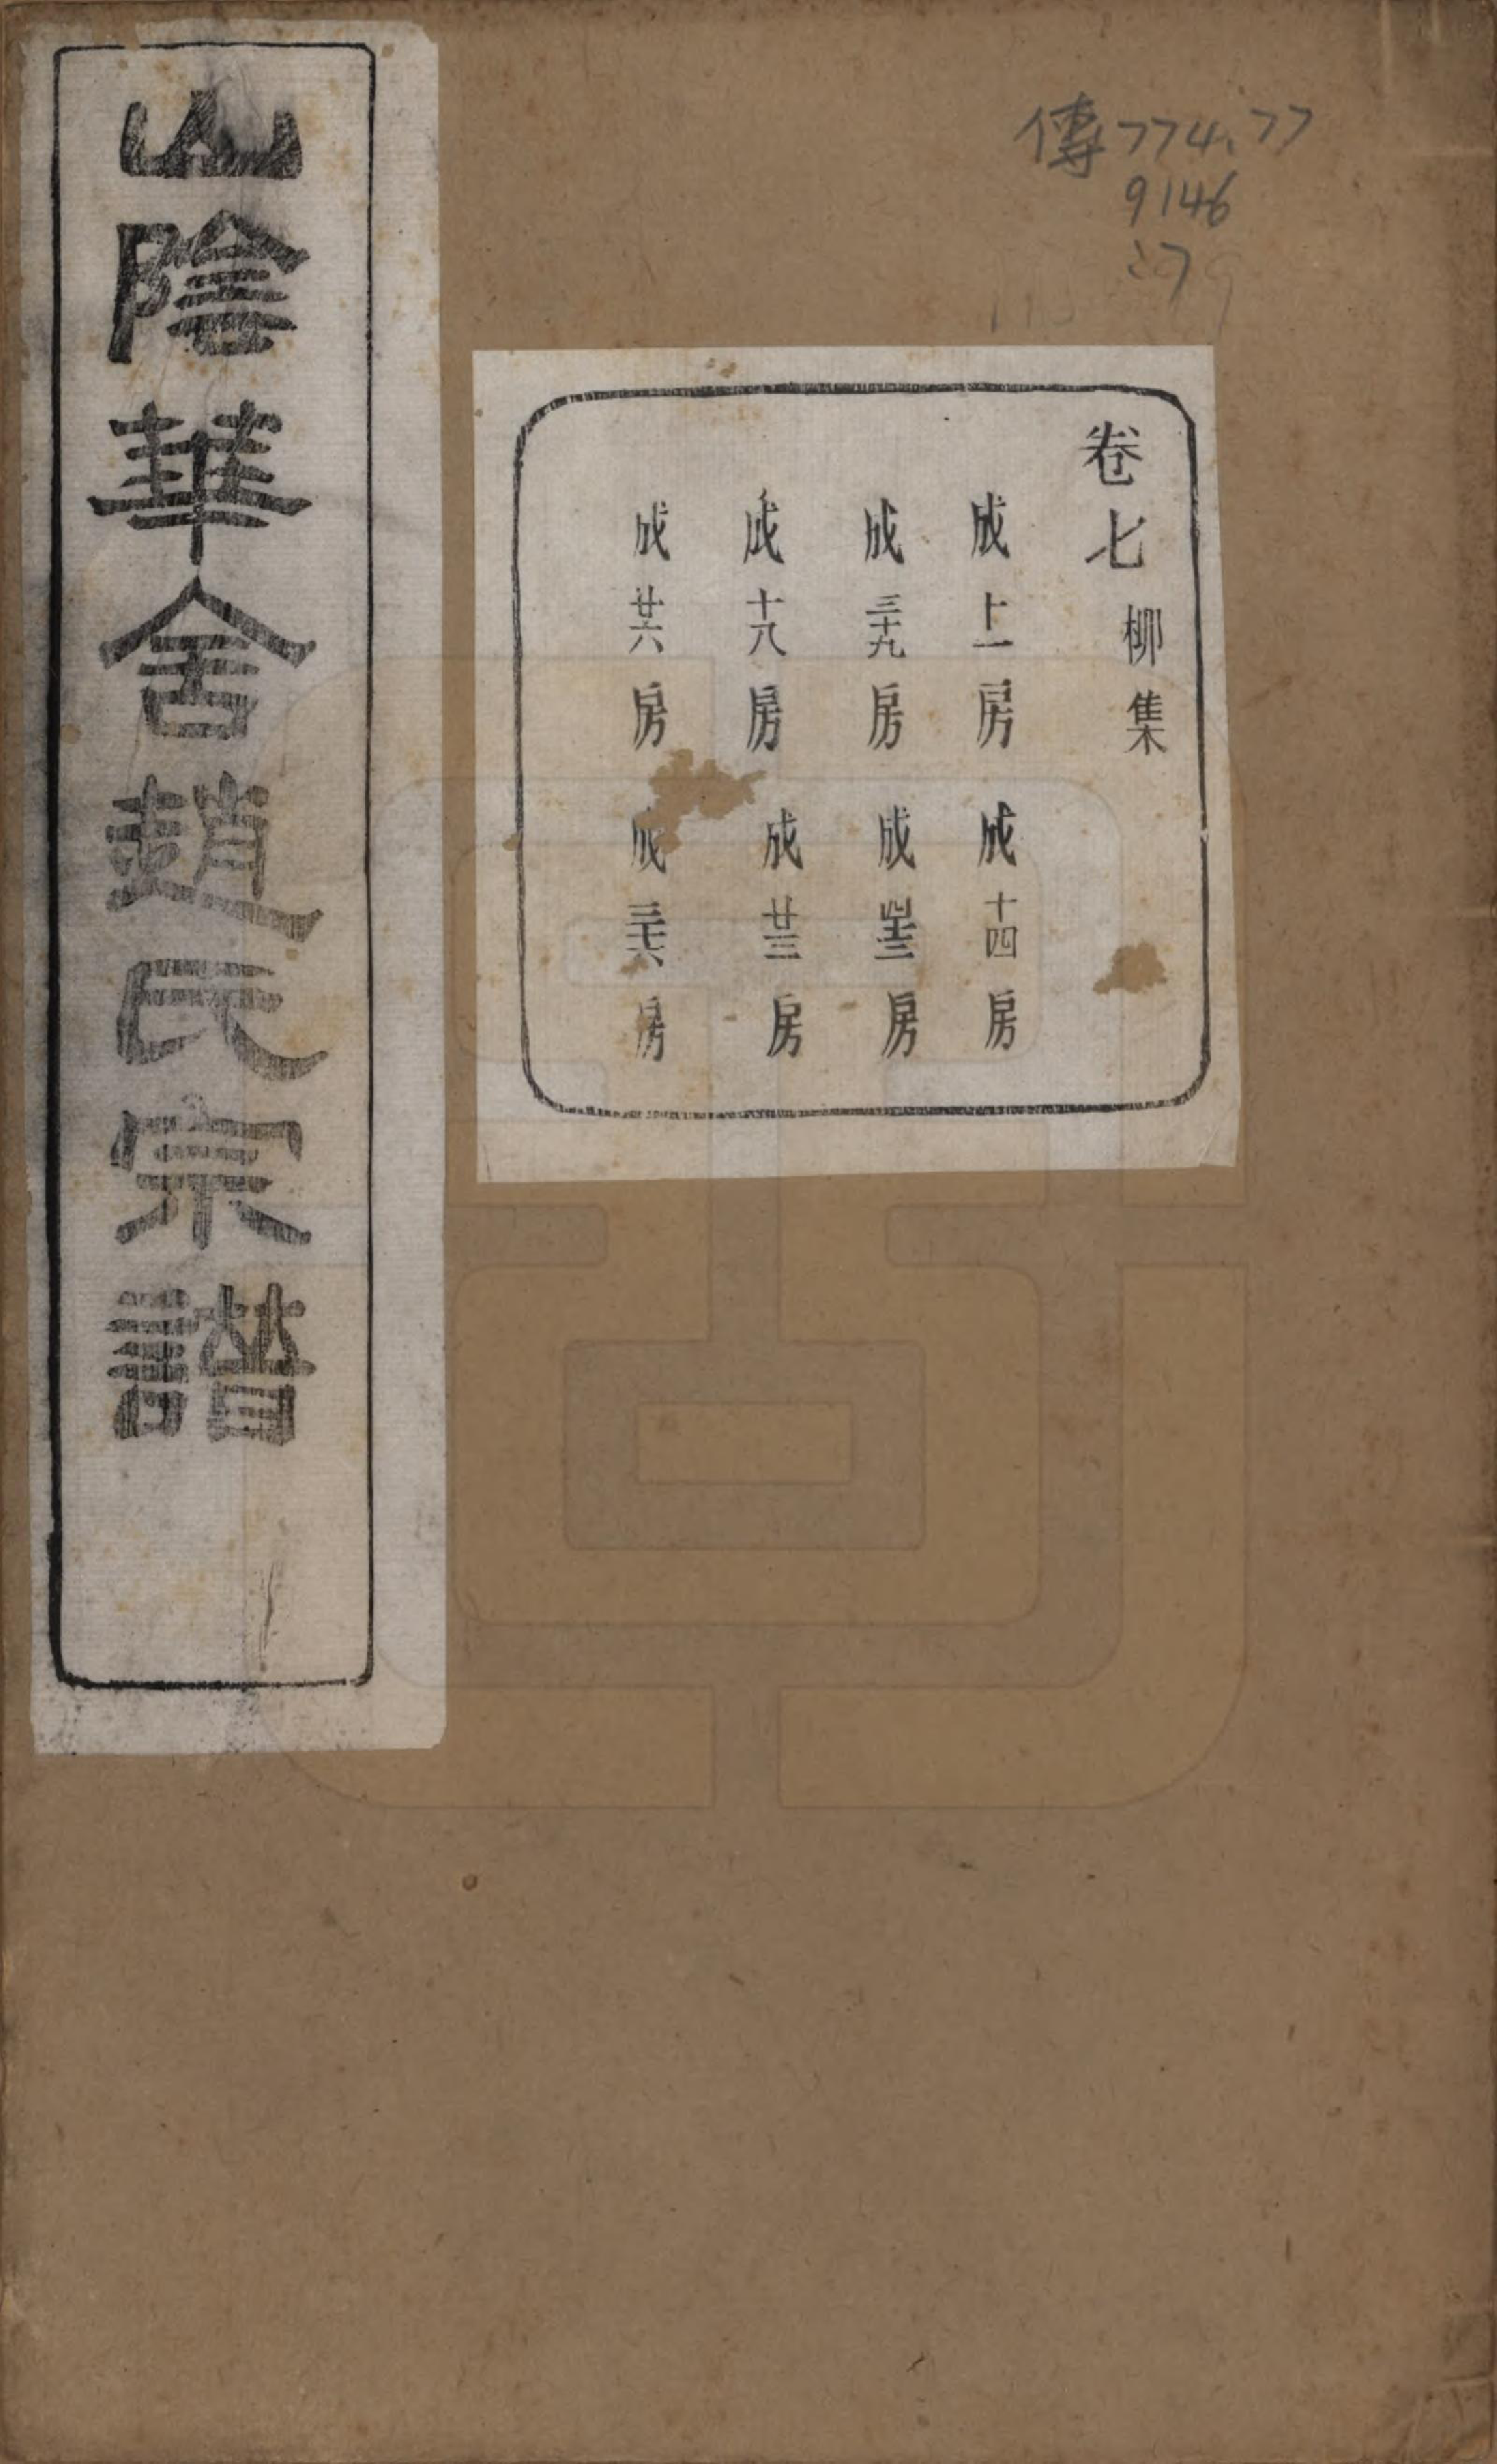 山陰華舍趙氏宗譜
傳774.77
9146
:7
卷七 柳集
成十一房 成十四房
成三十九房 成四十三房
成十八房 成廿三房
成廿六房 成三十六房